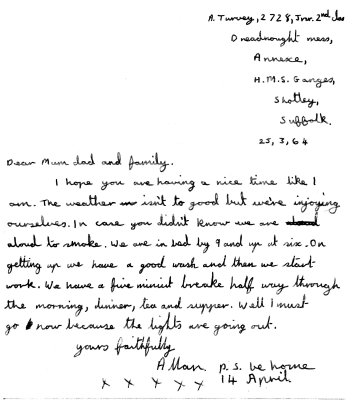 A. Turvey, 2728, Jnr. 2nd class
Dreadnought mess,
Annexe,
H.M.S. Ganges,
Shotley,
Suffolk.
25, 3, 64
Dear Mum dad and family.
I hope you are having a nice time like I
am. The weather isn't to good but we're injoying
ourselves. In case you didn't know we are
aloud to smoke. We are in bed by 9 and up at six. On
getting up we have a good wash and then we start
work. We have a five minist breake half way through
the morning, dinner, tea and supper. Well I must
go now because the lights are going out.
yours faithfully
Allan. p.s. be home
x x x x x 14 April.